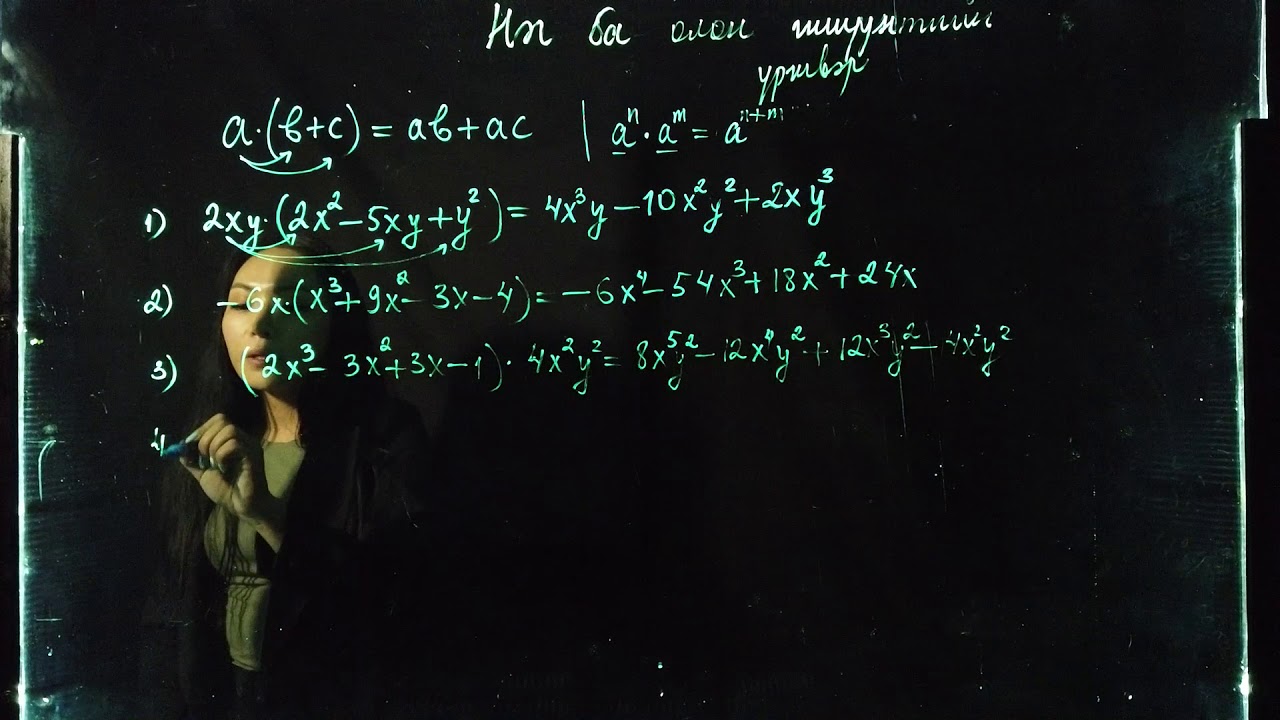 Нэг ба олон гишүүнтийн
үржвэр
a·(в+c) = aв+ac | aⁿ·aᵐ = aⁿ⁺ᵐ
1) 2xy·(2x²−5xy+y²) = 4x³y−10x²y²+2xy³
2) −6x·(x³+9x²−3x−4) = −6x⁴−54x³+18x²+24x
3) (2x³−3x²+3x−1)·4x²y² = 8x⁵y²−12x⁴y²+12x³y²−4x²y²
4